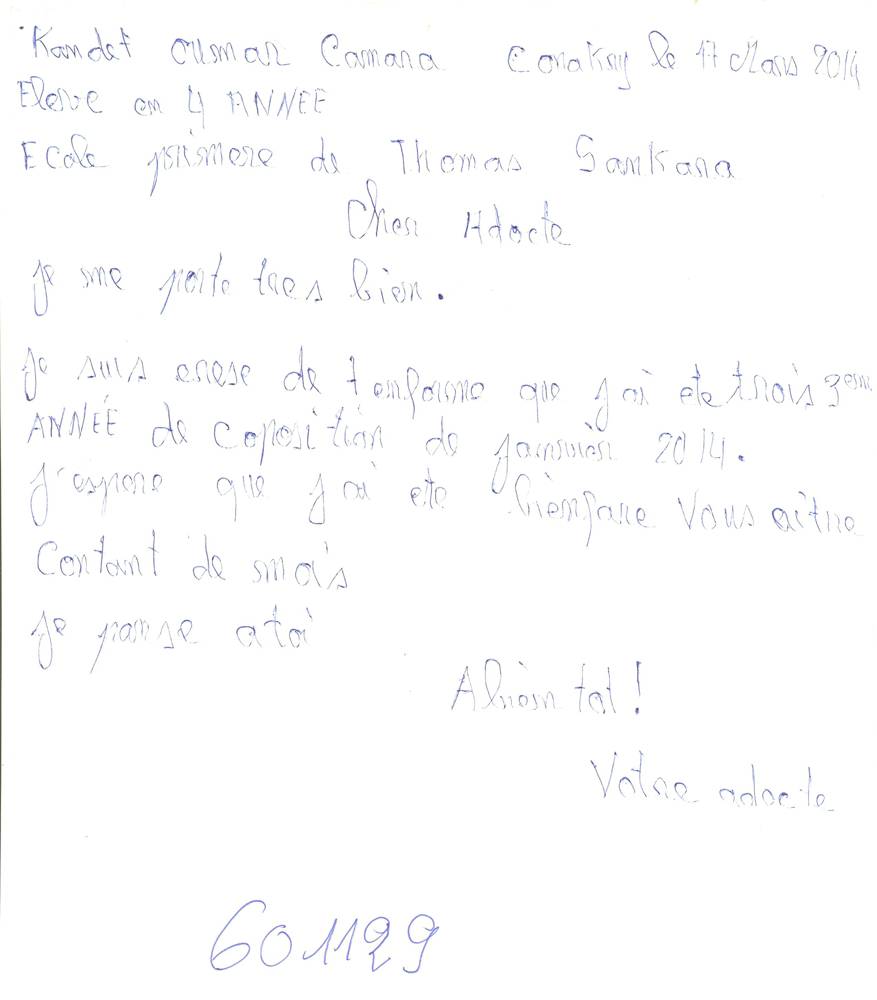 Kandet ousmar Camara Conakry le 17 Mars 2014
Eleve en 4 ANNEE
Ecole primere de Thomas Sankara
Cher Adocte
Je me porte tres bien.
Je suis erese de tenforme que j'ai ete trois 3eme
ANNÉE de coposition de janvier 2014.
J'espere que j'ai ete bienfare Vous aitre
Contant de mais
Je panse a toi
Abien tot!
Votre adocte
601129